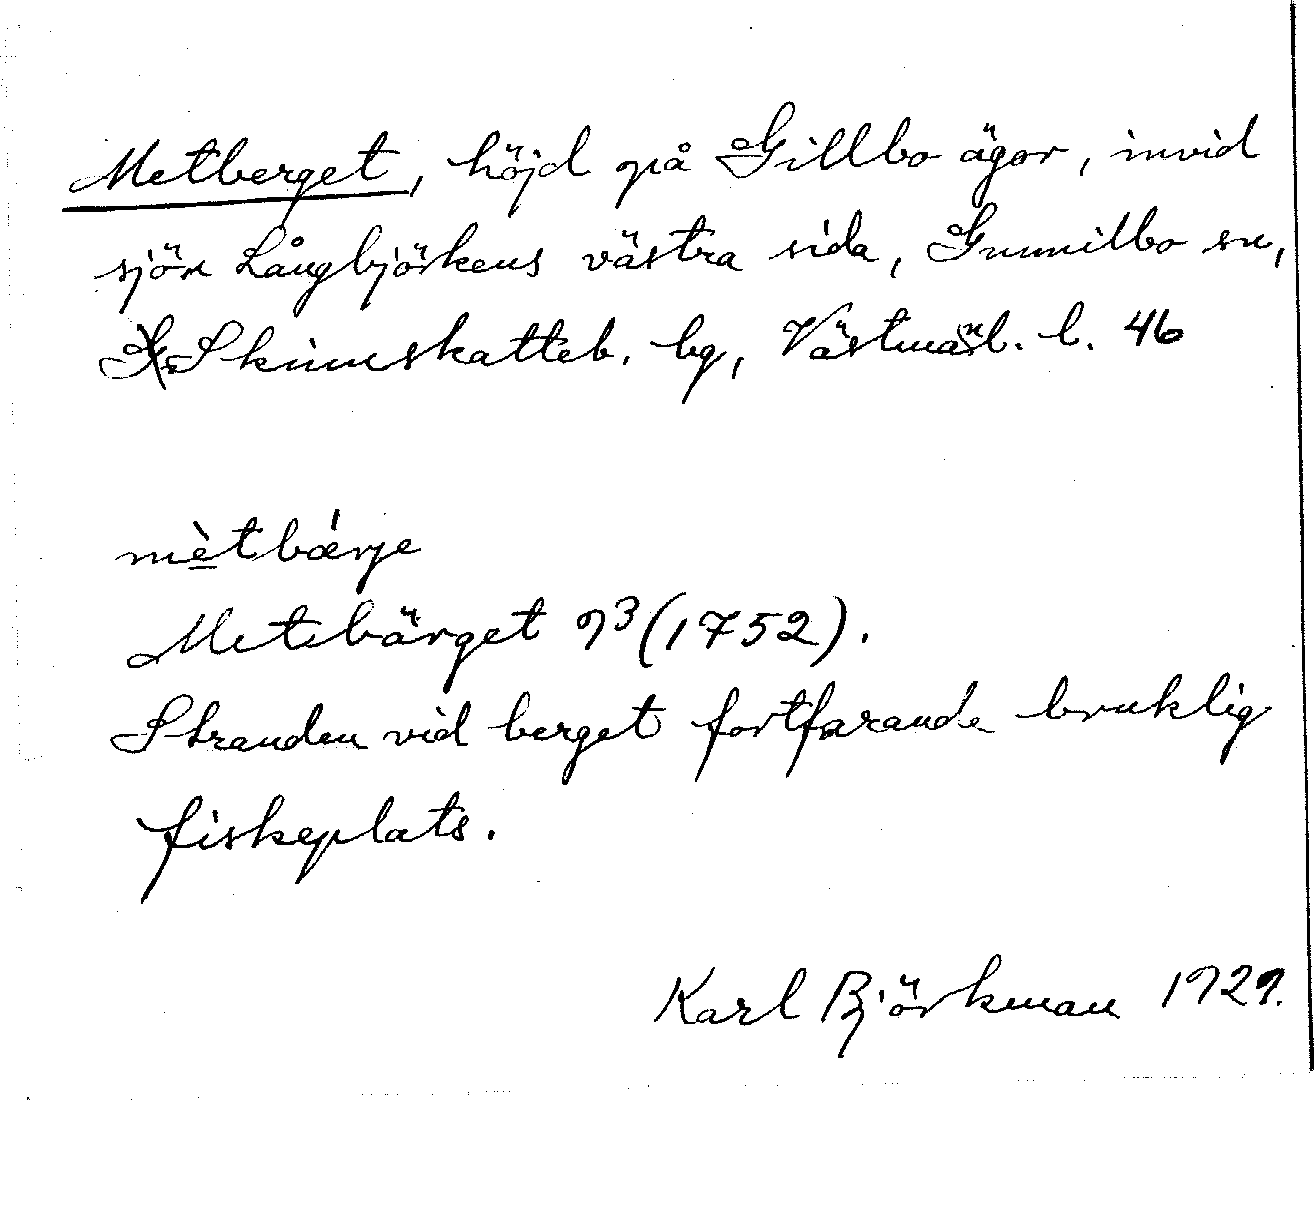 Metberget, höjd på Gillbo ägor, invid
sjön Långbjörkens västra sida, Gunnilbo sn,
Skinnskatteb. bg, Västmanl. l. 46
mètbǽrje
Metebärget 93 (1752).
Stranden vid berget fortfarande bruklig
fiskeplats.
Karl Björkman 1929.